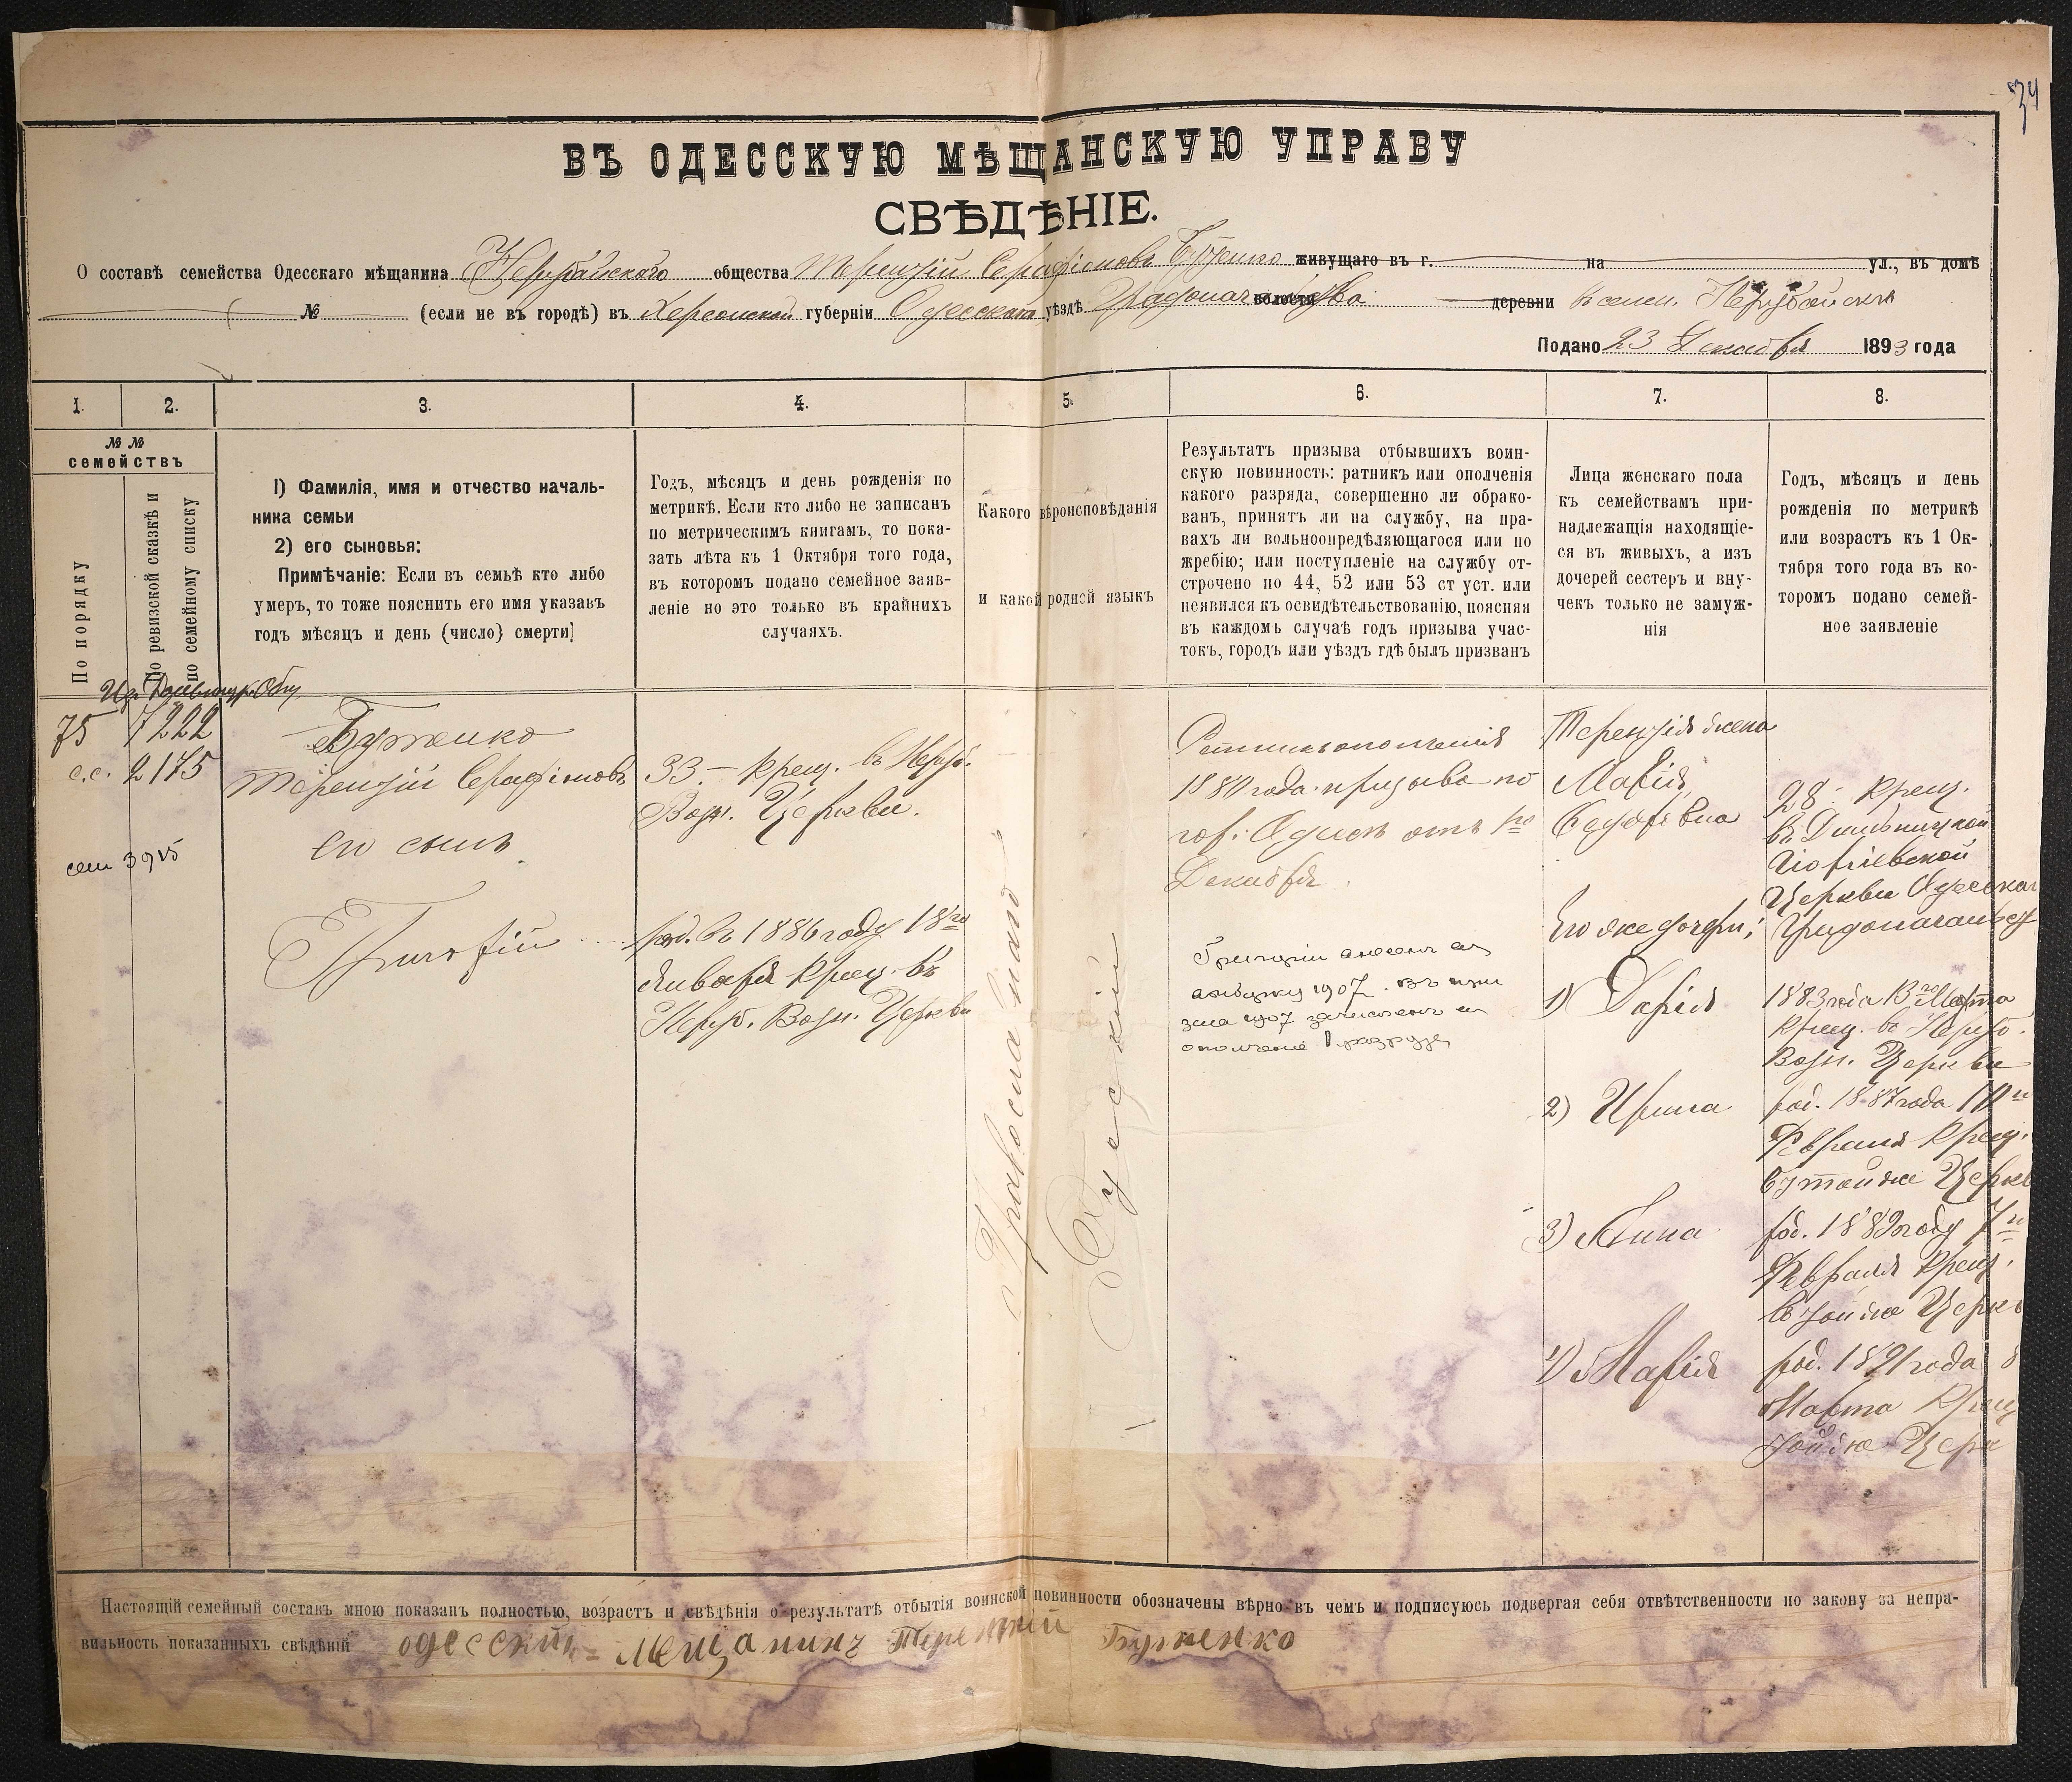 34
ВЪ ОДЕССКУЮ МѢЩАНСКУЮ УПРАВУ
СВѢДѢНІЕ.
О составѣ семейства Одесскаго мѣщанина Нерубайскаго общества Терентій Серафіоновъ Буженко живущаго въ г. на ул., въ домѣ
№ (если не въ городѣ) въ Херсонской губерніи Одесскаго уѣздѣ Градоначальства волости деревни въ селен. Нерубайскѣ
Подано 23 Декабря 1893 года
1. 2. 3. 4. 5. 6. 7. 8.
№ №
семействъ
По порядку
По ревизской сказкѣ и
по семейному списку
1) Фамилія, имя и отчество началь-
ника семьи
2) его сыновья:
Примѣчаніе: Если въ семьѣ кто либо
умеръ, то тоже пояснить его имя указавъ
годъ мѣсяцъ и день (число) смерти)
Годъ, мѣсяцъ и день рожденія по
метрикѣ. Если кто либо не записанъ
по метрическимъ книгамъ, то пока-
зать лѣта къ 1 Октября того года,
въ которомъ подано семейное заяв-
леніе но это только въ крайнихъ
случаяхъ.
Какого вѣроисповѣданія
и какой родной языкъ
Результатъ призыва отбывшихъ воин-
скую повинность: ратникъ или ополченія
какого разряда, совершенно ли обрако-
ванъ, принятъ ли на службу, на пра-
вахъ ли вольноопредѣляющагося или по
жребію; или поступленіе на службу от-
строчено по 44, 52 или 53 ст уст. или
неявился къ освидѣтельствованію, поясняя
въ каждомъ случаѣ годъ призыва учас-
токъ, городъ или уѣздъ гдѣ былъ призванъ
Лица женскаго пола
къ семействамъ при-
надлежащія находящіе-
ся въ живыхъ, а изъ
дочерей сестеръ и вну-
чекъ только не замуж-
нія
Годъ, мѣсяцъ и день
рожденія по метрикѣ
или возрастъ къ 1 Ок-
тября того года въ ко-
торомъ подано семей-
ное заявленіе
75 7222
с.с. 2175
сем 3915
Буженко
Терентій Серафіоновъ
его сынъ
Григорій
33 – крещ. въ Неруб.
Возн. Церкви.
род. въ 1886 году 18го
Января крещ. въ
Неруб. Возн. Церкви
Православнаго
Русскій
Ратникъ ополченія
1880 года призыва по
гор. Одессѣ отъ 1го
Декабря.
Григорій внесенъ въ
1907 въ
1907 зачисленъ въ
ополченіе 1 разряда
Терентія жена
Марія
Сидоровна
Его же дочери;
1) Дарія
2) Ирина
3) Анна
4) Марія
28 – крещ.
въ Дальницкой
Церкви Одесскаг
Градоначальст
1883 года 13го Марта
крещ. въ Неруб.
Возн. Церкви
род. 1887 года
Февраля крещ.
въ той же Церкв
род. 1889 году 7го
Февраля крещ.
въ той же Церкв
род. 1891 года 8
Марта крещ
той же Церк
Настоящій семейный составъ мною показанъ полностью, возрастъ и свѣдѣнія о результатѣ отбытія воинской повинности обозначены вѣрно въ чемъ и подписуюсь подвергая себя отвѣтственности по закону за непра-
вильность показанныхъ свѣдѣній одесскій мещанинъ Терентій Буженко